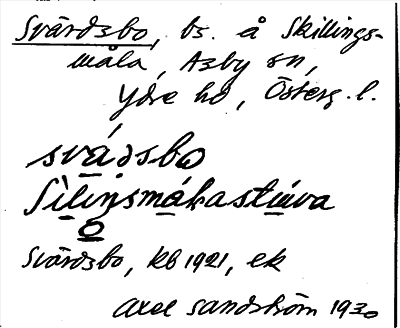 Svärdsbo, bs. å Skillings-
måla, Asby sn,
Ydre hd, Österg. l.
svádsbo
Sìlinsmákastúva
o
Svärdsbo, kb 1921, ek
Axel Sandström 1930